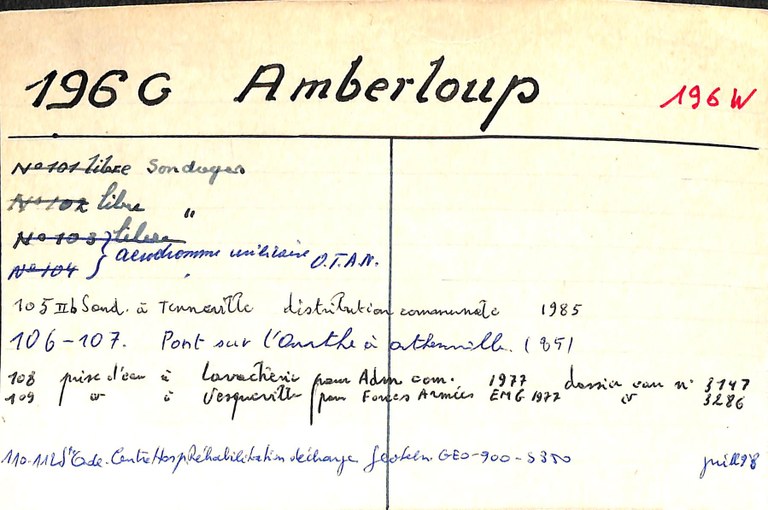 196 G Amberloup 196 W
N° 101 libre Sondages
N° 102 libre "
N° 103 libre
N° 104 } aerodromme militaire O.T.A.N.
105 IIb Sond. à Tenneville distribution communale 1985
106-107. Pont sur l'Ourthe à Ortheuville. (85)
108 prise d'eau à Lavacherie pour Adm com. 1977 dossier eau n° 3147
109 " à Vesqueville pour Forces Armées EMG 1977 " 3286
110-112 Ste Ode. Centre Hosp Réhabilitation décharge Geolab GEO-900-S350 juill 98